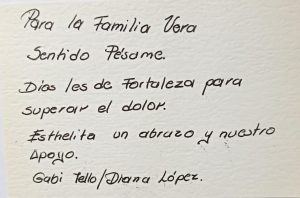 Para la Familia Vera
Sentido Pésame.
Dios les de Fortaleza para
superar el dolor.
Esthelita un abrazo y nuestro
Apoyo.
Gabi Tello/Diana López.